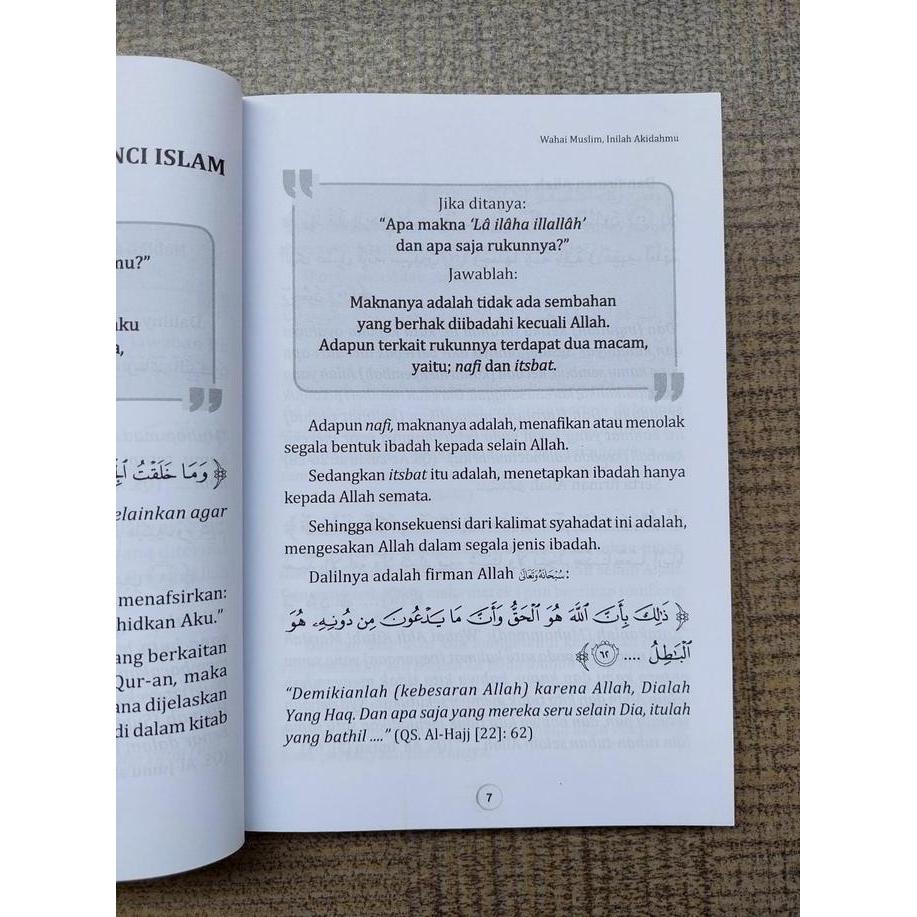 NCI ISLAM
mu?"
aku
a,
﴿ وَمَا خَلَقْتُ
elainkan agar
menafsirkan:
hidkan Aku."
ang berkaitan
Qur-an, maka
ana dijelaskan
di dalam kitab
Wahai Muslim, Inilah Akidahmu
Jika ditanya:
"Apa makna 'Lâ ilâha illallâh'
dan apa saja rukunnya?"
Jawablah:
Maknanya adalah tidak ada sembahan
yang berhak diibadahi kecuali Allah.
Adapun terkait rukunnya terdapat dua macam,
yaitu; nafi dan itsbat.
Adapun nafi, maknanya adalah, menafikan atau menolak
segala bentuk ibadah kepada selain Allah.
Sedangkan itsbat itu adalah, menetapkan ibadah hanya
kepada Allah semata.
Sehingga konsekuensi dari kalimat syahadat ini adalah,
mengesakan Allah dalam segala jenis ibadah.
Dalilnya adalah firman Allah سُبْحَانَهُ وَتَعَالَىٰ:
﴿ ذَٰلِكَ بِأَنَّ ٱللَّهَ هُوَ ٱلْحَقُّ وَأَنَّ مَا يَدْعُونَ مِن دُونِهِۦ هُوَ
ٱلْبَٰطِلُ .... ٦٢ ﴾
"Demikianlah (kebesaran Allah) karena Allah, Dialah
Yang Haq. Dan apa saja yang mereka seru selain Dia, itulah
yang bathil ...." (QS. Al-Hajj [22]: 62)
7